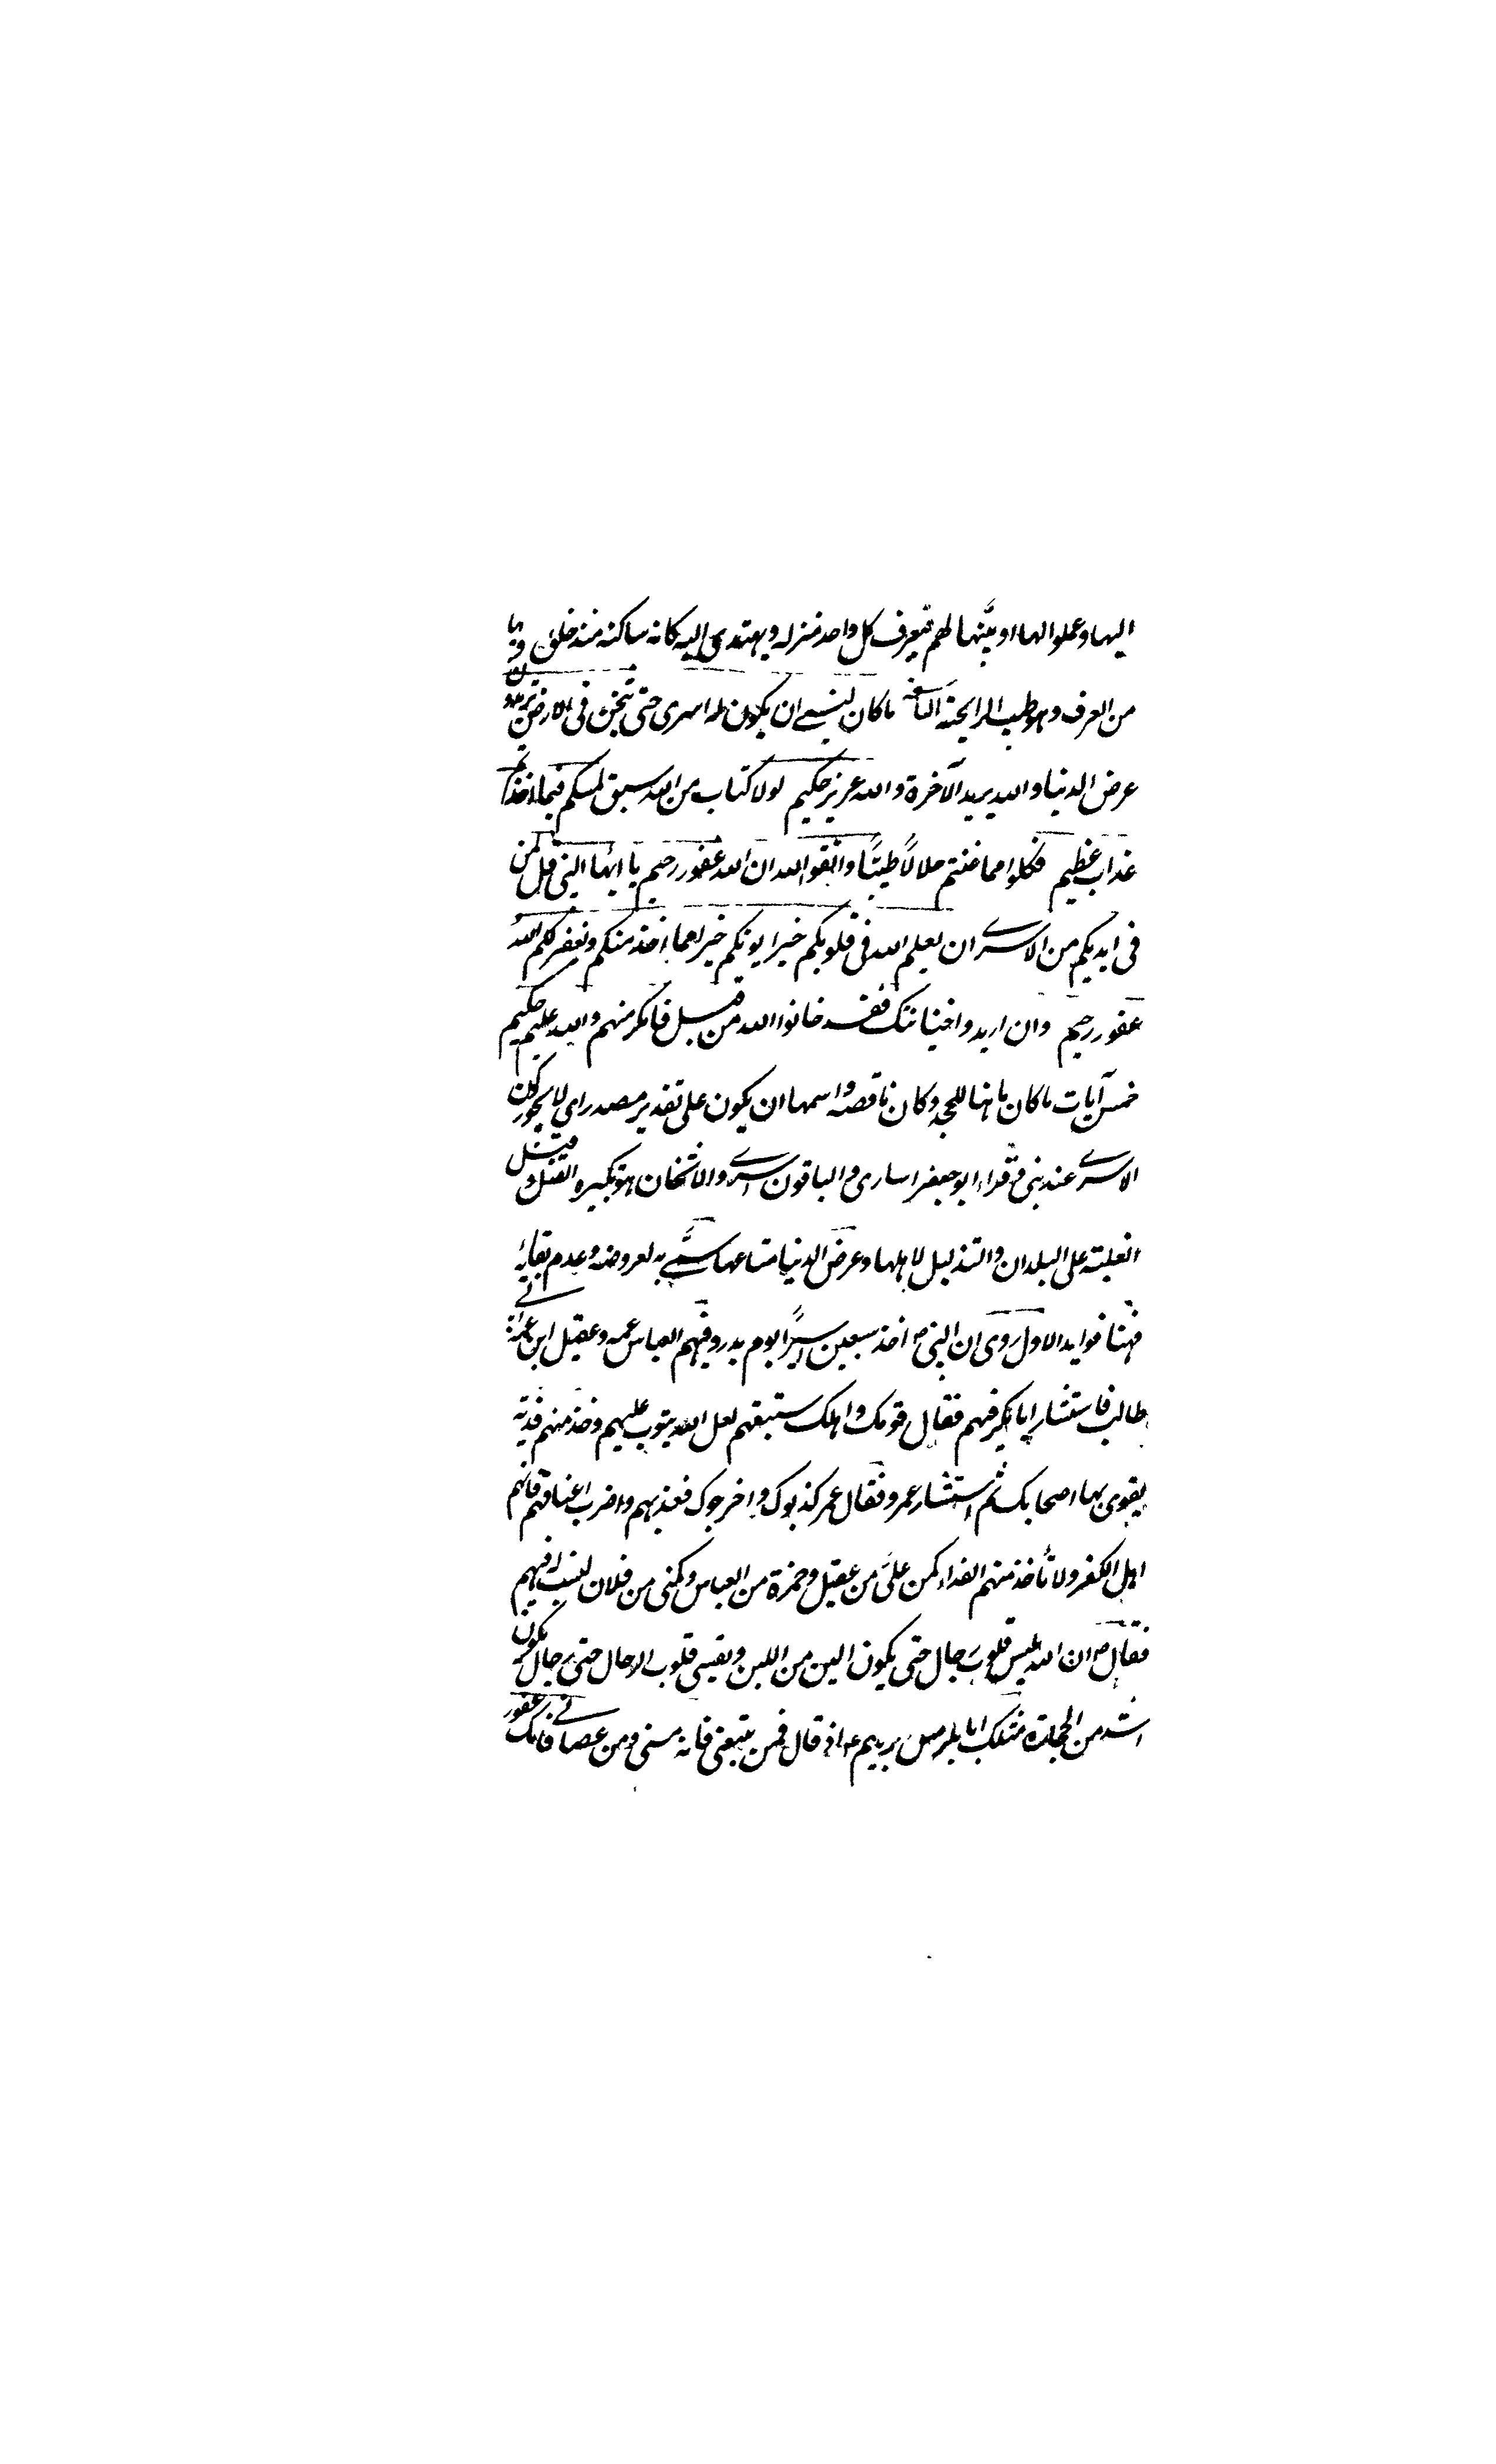 اليها وعملوا لها او بيّنها لهم فيعرف كل واحد منزله ويهتدى اليه كانه ساكنه منذ خلق
من العرف وهو طيب الرايحة ما كان لنبى ان يكون له اسرى حتى يثخن فى الارض تريدون
عرض الدنيا والله يريد الآخرة والله عزيز حكيم لولا كتاب من الله سبق لمسكم فيما اخذتم
عذاب عظيم فكلوا مما غنمتم حلالاً طيبًا واتقوا الله ان الله غفور رحيم يا ايها النبى قل لمن
فى ايديكم من الاسرى ان يعلم الله فى قلوبكم خيرا يوتكم خيرا مما اخذ منكم ويغفر لكم والله
غفور رحيم وان اريدوا خيانتك فقد خانوا الله من قبل فامكن منهم والله عليم حكيم
خمس آيات ما كان ما هنا للجحد وكان ناقصة واسمها ان يكون على تقدير مصدر اى لا يجوز كون
الاسرى عند نبى و قراء ابو جعفر اسارى والباقون اسرى والاثخان هو تكثير القتل وقيل
الغلبة على البلدان والتذليل لاهلها وعرض الدنيا متاعها سمى به لعروضه وعدم بقائه
فهنا فوايد الاول روى ان النبى ص اخذ سبعين اسيرًا يوم بدر وفيهم العباس عمه وعقيل ابن عمه ابى
طالب فاستشار ابا بكر فيهم فقال قومك واهلك استبقهم لعل الله يتوب عليهم وخذ منهم فدية
يقوى بها اصحابك ثم استشار عمر وفقال عمر كذبوك واخرجوك فعذبهم واضرب اعناقهم فانهم
اهل الكفر ولا تأخذ منهم الفداء كمن على من عقيل وحمزة من العباس ومكنى من فلان لنسب له فيهم
فقال ص ان الله يلين قلوب رجال حتى يكون الين من اللبن ويقسى قلوب الرجال حتى يكون
اشد من الحجارة مثلك ابابكر مثل ابرهيم ع اذ قال فمن يتبعنى فانه منى ومن عصانى فانك غفور